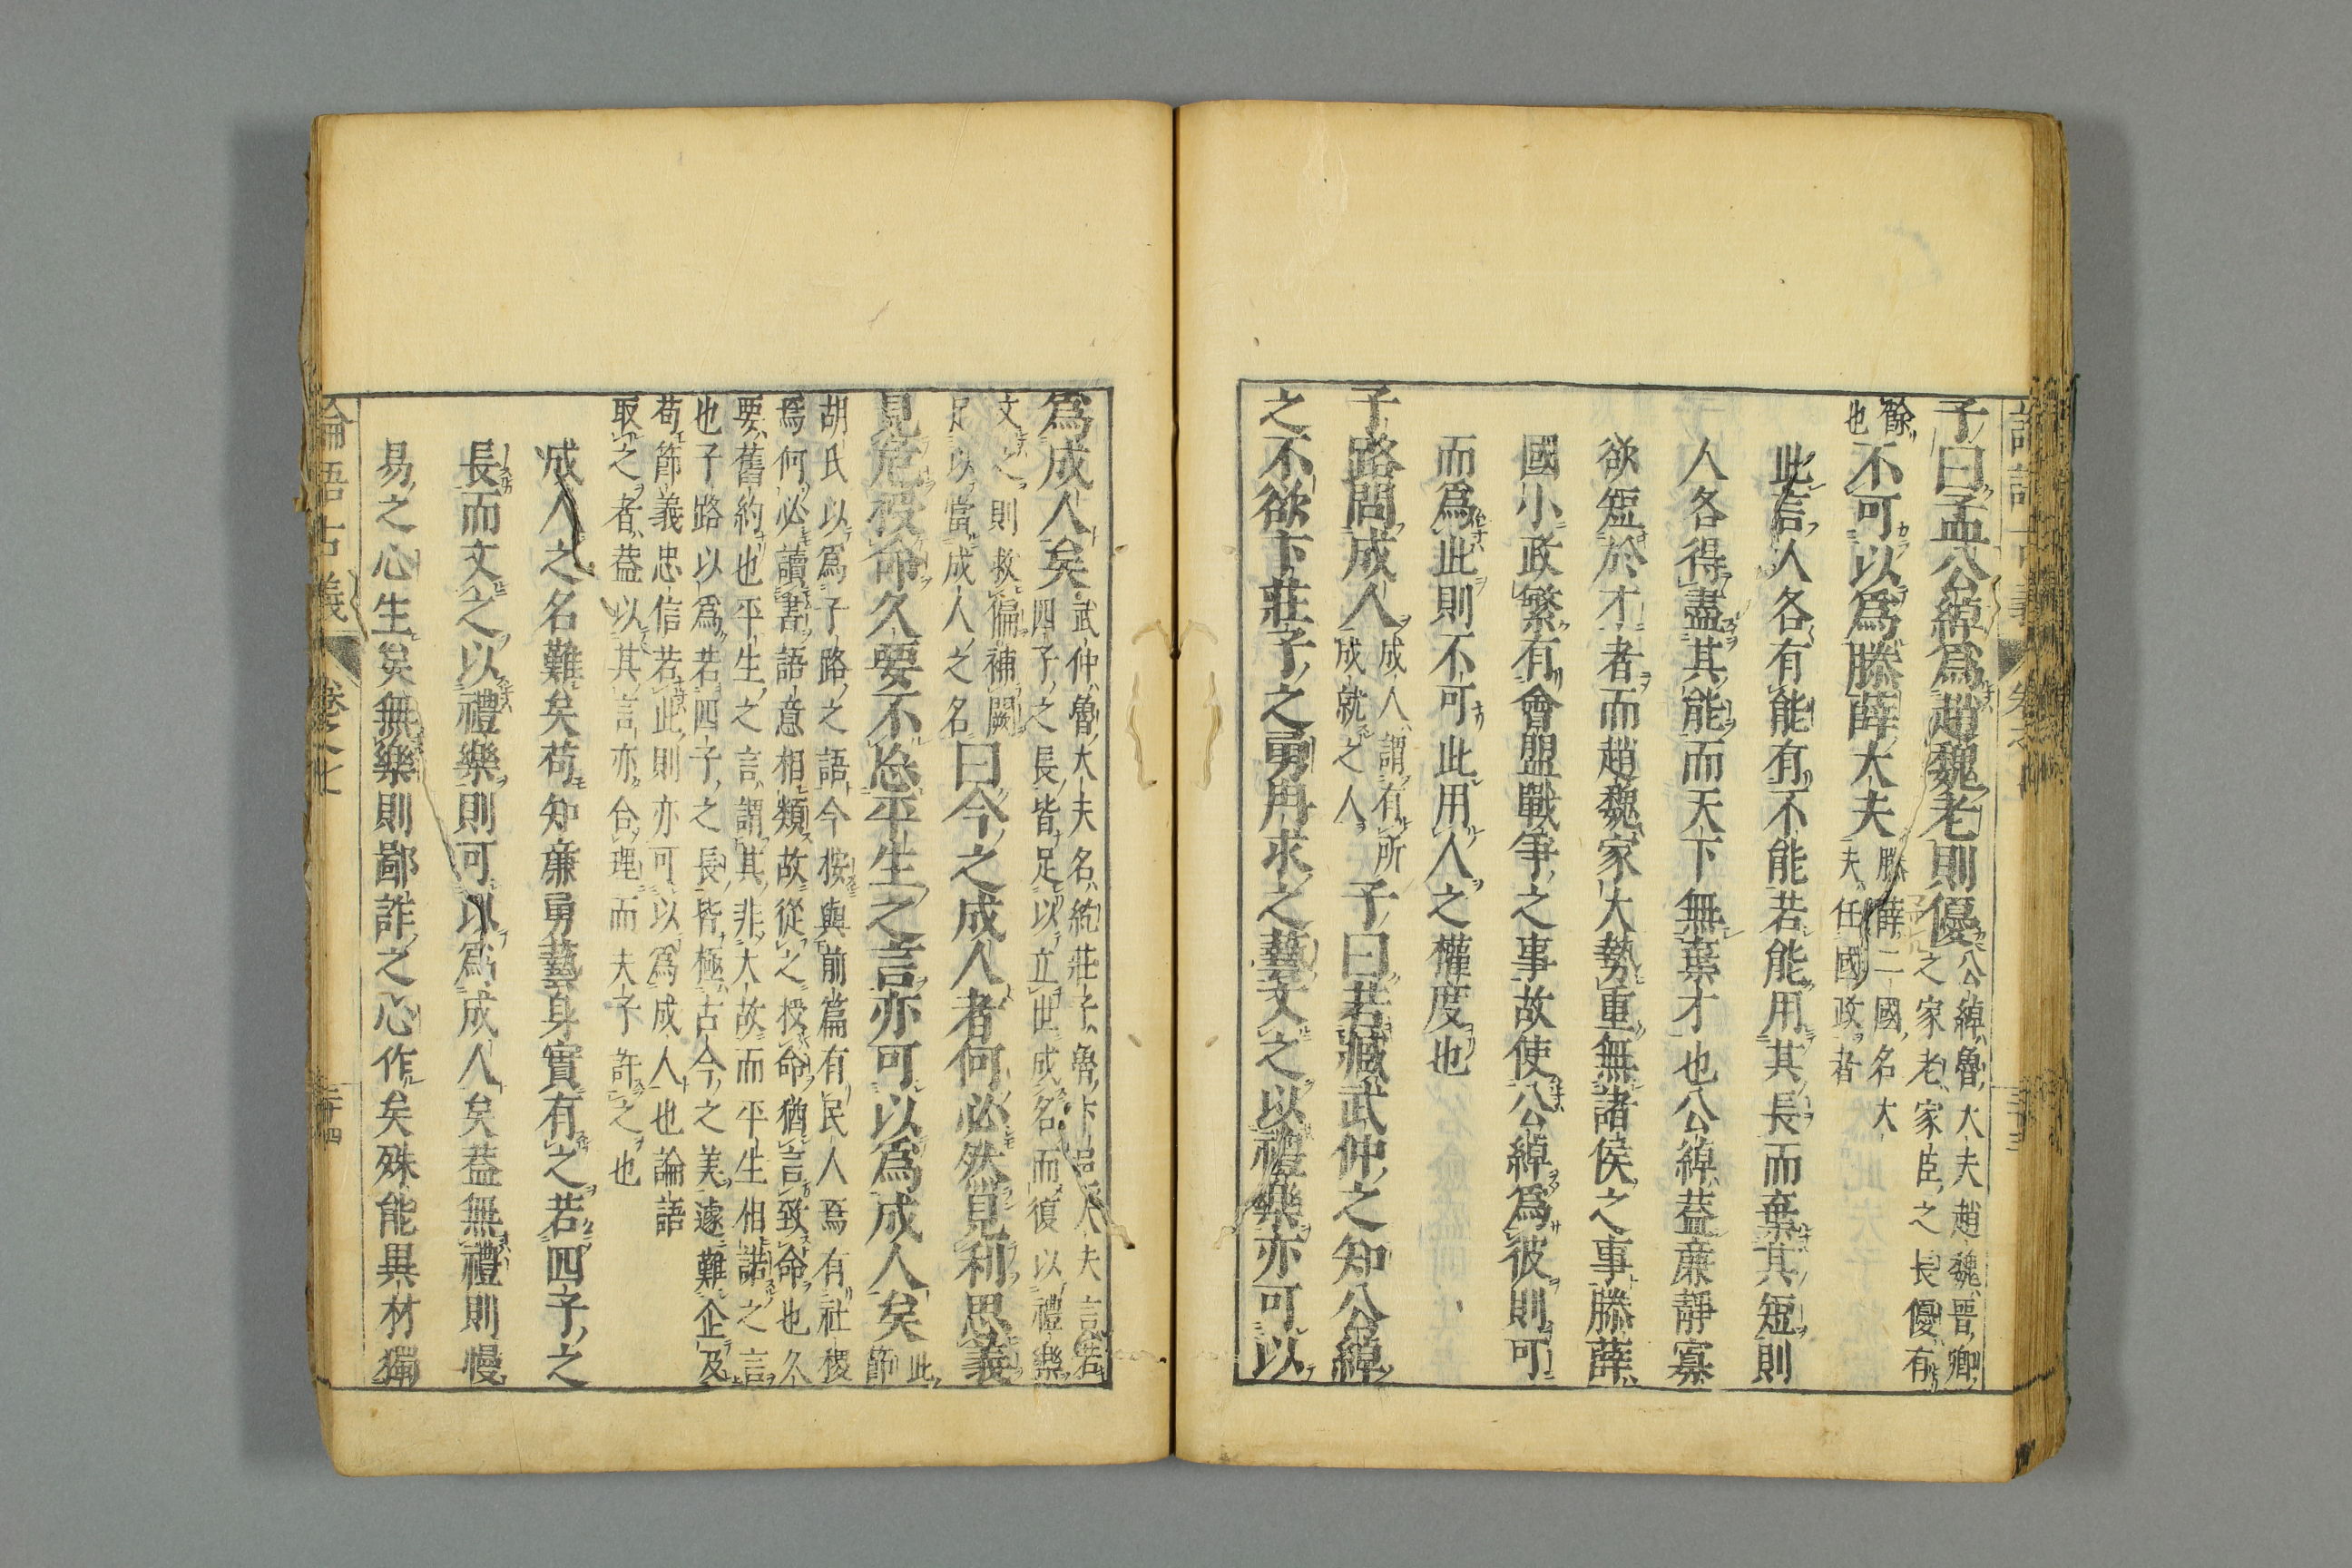 子曰孟公綽爲趙魏老則優公綽魯大夫趙魏晉卿
之家老家臣之長優有
餘也不可以爲滕薛大夫滕薛二國名大
夫任國政者
此言人各有能有不能若能用其長而棄其短則
人各得盡其能而天下無棄才也公綽蓋廉靜寡
欲短於才者而趙魏家大勢重無諸侯之事滕薛
國小政繁有會盟戰爭之事故使公綽爲彼則可
而爲此則不可此用人之權度也
子路問成人成人謂有所
成就之人子曰若臧武仲之知公綽
之不欲卞莊子之勇冉求之藝文之以禮樂亦可以
爲成人矣武仲魯大夫名紇莊子魯卞邑大夫言若
四子之長皆足以立世成名而復以禮樂
文之則救偏補闕
足以當成人之名曰今之成人者何必然見利思義
見危授命久要不忘平生之言亦可以爲成人矣此
節
胡氏以爲子路之語今按與前篇有民人焉有社稷
焉何必讀書語意相類故從之授命猶言致命也久
要舊約也平生之言謂其非大故而平生相諾之言
也子路以爲若四子之長皆極古今之美遽難企及
苟節義忠信若此則亦可以爲成人也論語
取之者蓋以其言亦合理而夫子許之也
成人之名難矣苟知廉勇藝身實有之若四子之
長而文之以禮樂則可以爲成人矣蓋無禮則慢
易之心生矣無樂則鄙詐之心作矣殊能異材獨
論語古義
卷之七
三十四